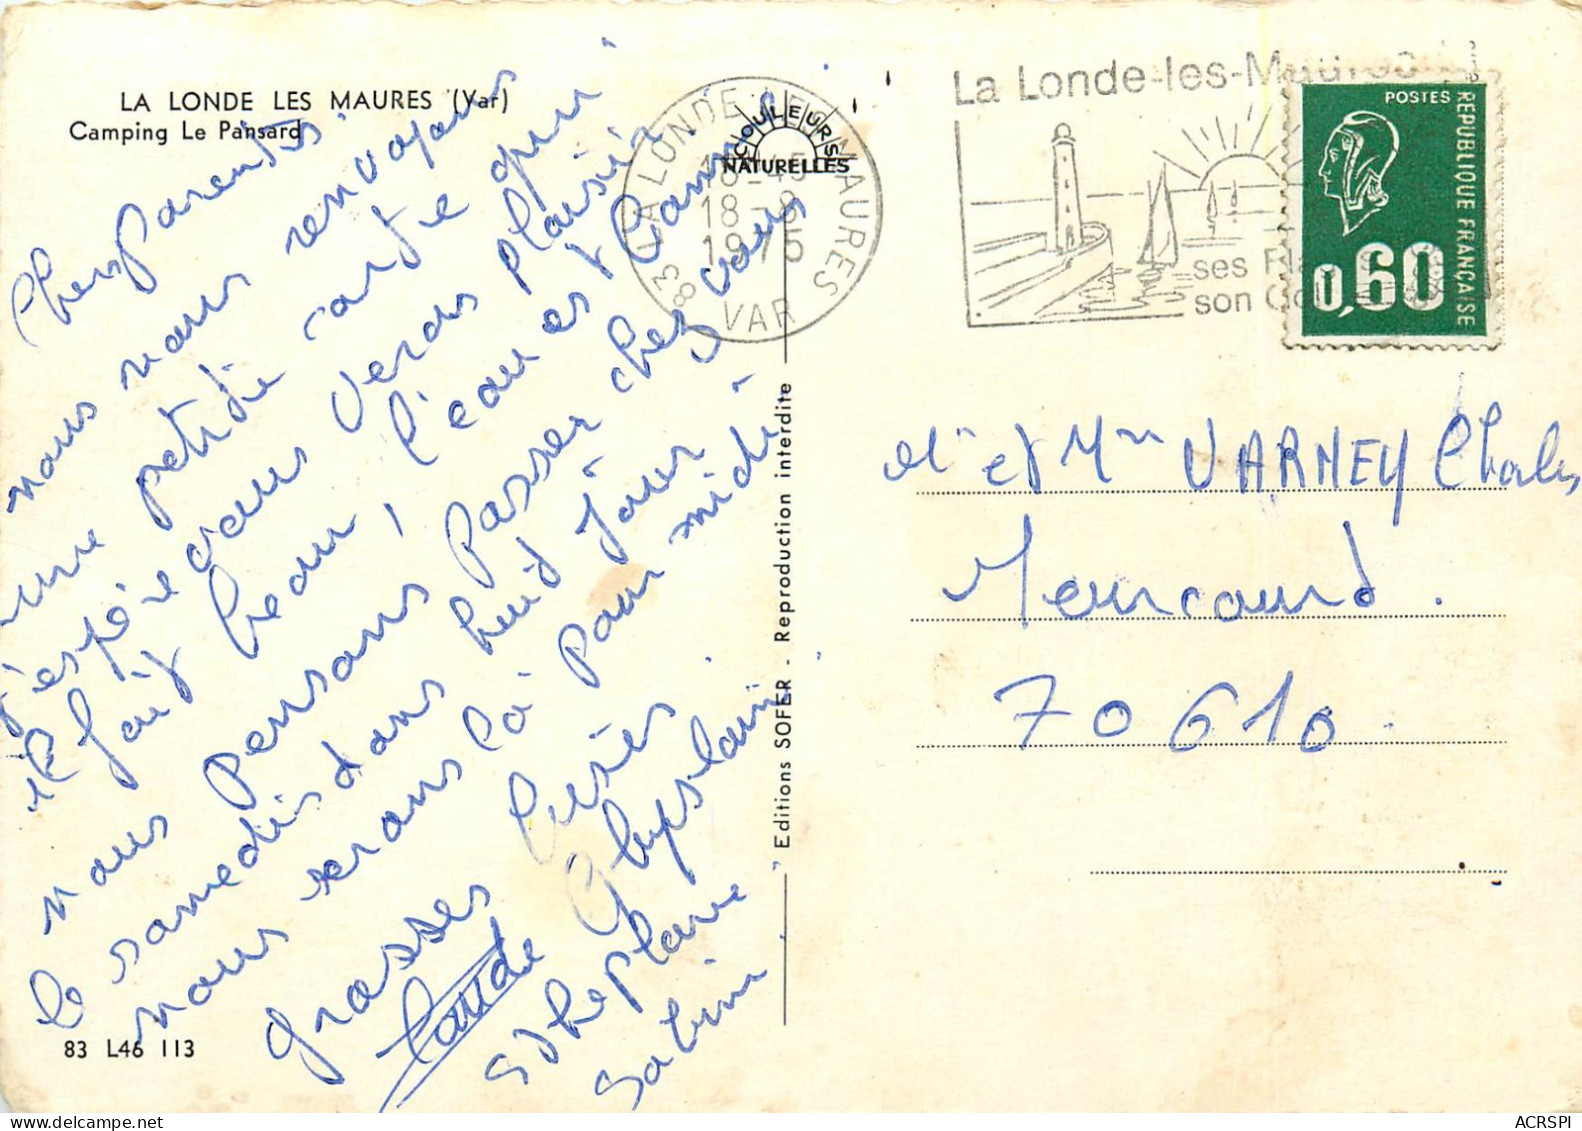 LA LONDE LES MAURES (Var)
Camping Le Pansard
Chers parents
nous vous renvoyons
une petitie cartie qui
j'espère vous veras plaisir
il fait beau, l'eau est
nous pensons passer chez vous
le samedis dans huid jour
nous serons là pour midi
grosses bises
Claude
Ghyslain
Sabrina
83 L46 113
COULEURS
NATURELLES
Editions SOFER - Reproduction interdite
83 LA LONDE LES MAURES
18-45
18-8
1975
VAR
La Londe-les-Maures
ses
son
POSTES
REPUBLIQUE FRANÇAISE
0,60
Mr et Mme VARNEY Charles
Mercourd.
70610.
ACRSPI